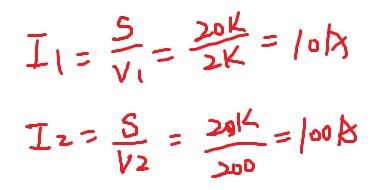 I1 = S/V1 = 20K/2K = 10A
I2 = S/V2 = 20K/200 = 100A